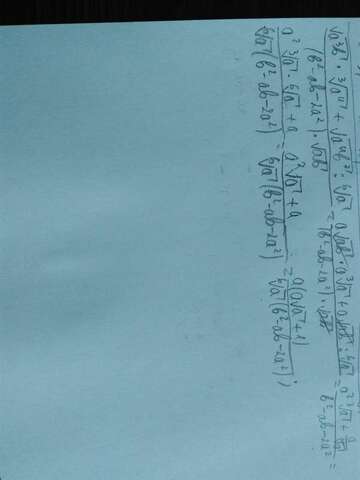 (√(a³b) · ³√(a⁴) + √(a⁴b²) : ⁶√a) / ((b² - ab - 2a²) · √(ab)) = (a√(ab) · a ³√a + a√(ab) : ⁶√a) / ((b² - ab - 2a²) · √(ab)) = (a² ³√a + a/⁶√a) / (b² - ab - 2a²) =
(a² ³√a · ⁶√a + a) / (⁶√a (b² - ab - 2a²)) = (a²√a + a) / (⁶√a (b² - ab - 2a²)) = a(a√a + 1) / (⁶√a (b² - ab - 2a²)) ;